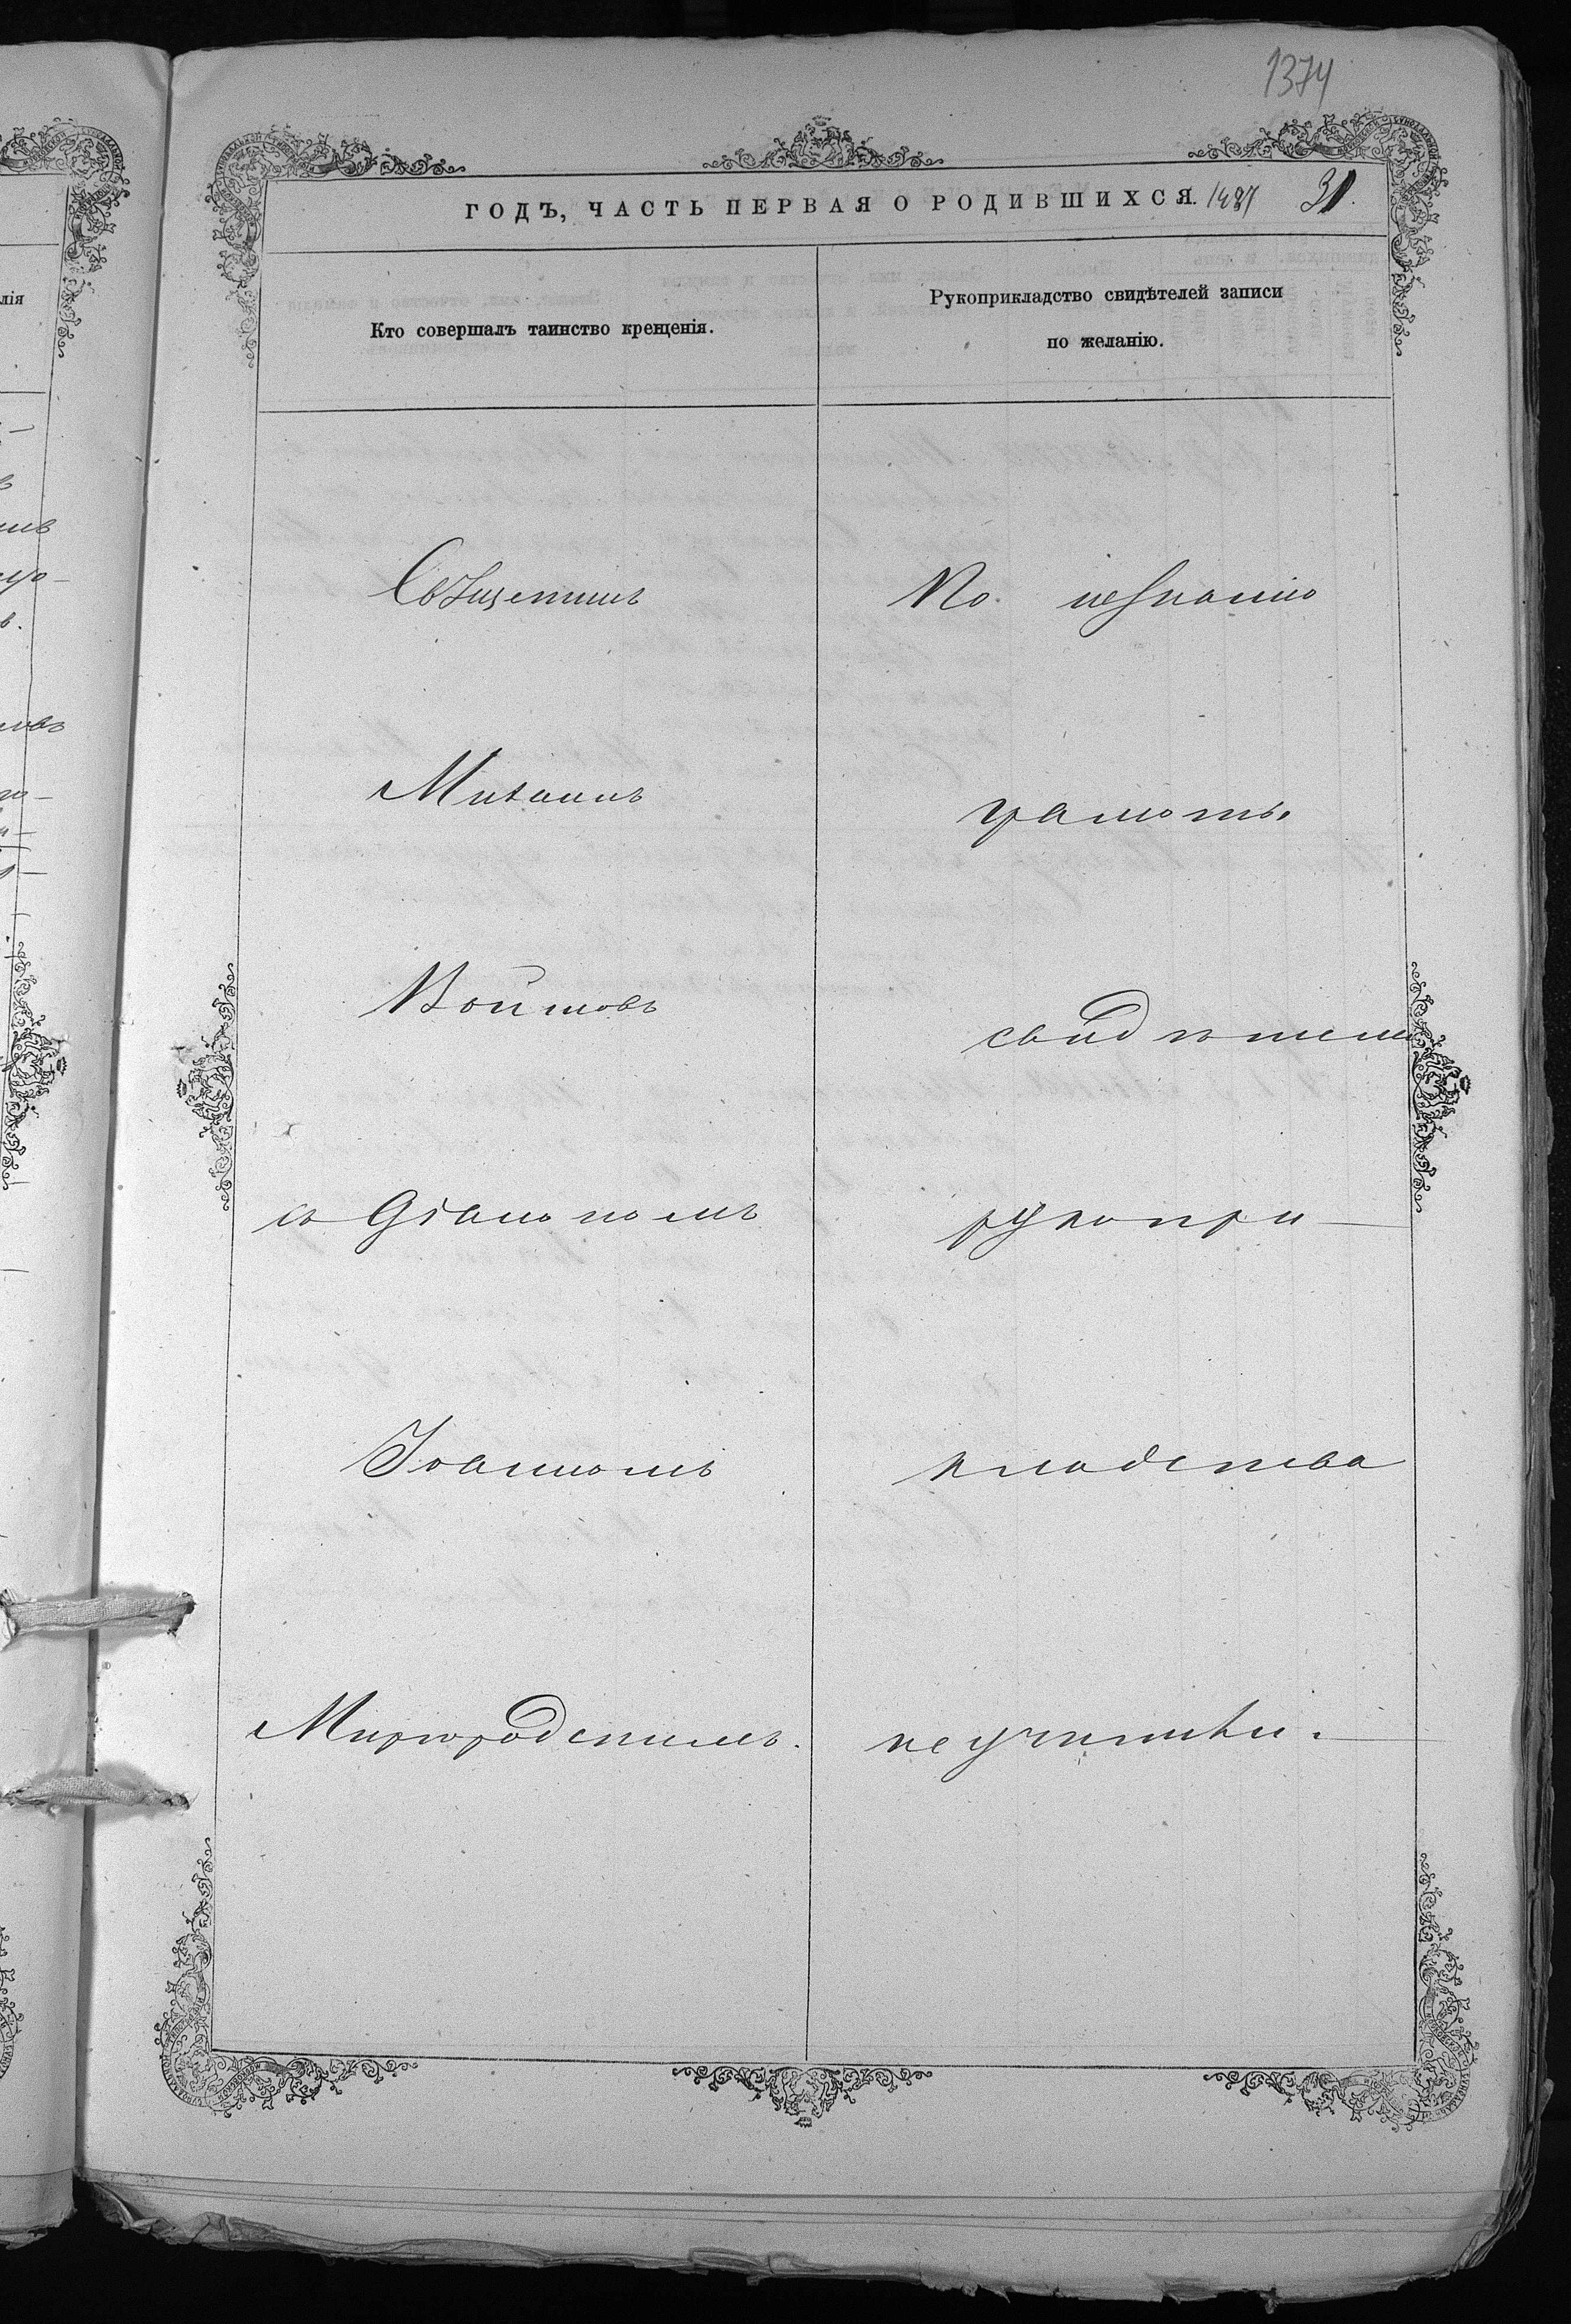 1374
ГОДЪ, ЧАСТЬ ПЕРВАЯ О РОДИВШИХСЯ. 31.
Кто совершалъ таинство крещенія.
Рукоприкладство свидѣтелей записи
по желанію.
Священникъ
Михаилъ
Войтовъ
съ Діакономъ
Іоанномъ
Миргородскимъ.
По незнанію
грамотѣ
свидѣтели
рукопри-
кладства
не учинили.
лія